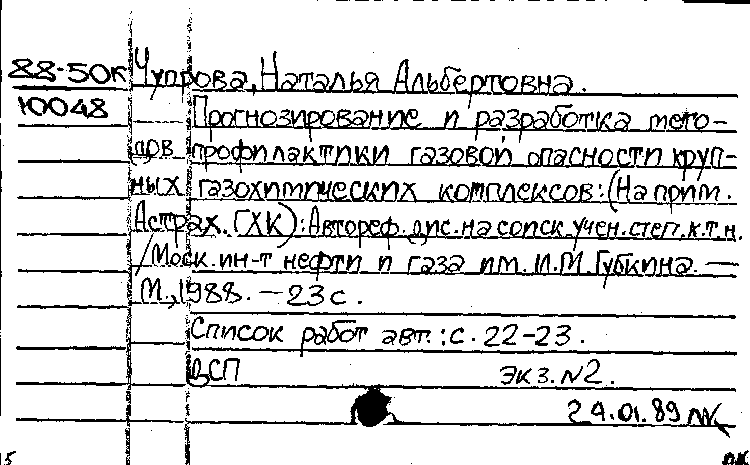 88-50к Чупрова, Наталья Альбертовна.
10048 Прогнозирование и разработка мето-
дов профилактики газовой опасности круп-
ных газохимических комплексов: (На прим.
Астрах. ГХК): Автореф. дис. на соиск. учен. степ. к.т.н.
/Моск. ин-т нефти и газа им. И.М. Губкина. —
М., 1988. — 23 с.
Список работ авт.: с. 22-23.
ДСП Экз. №2.
24.01.89